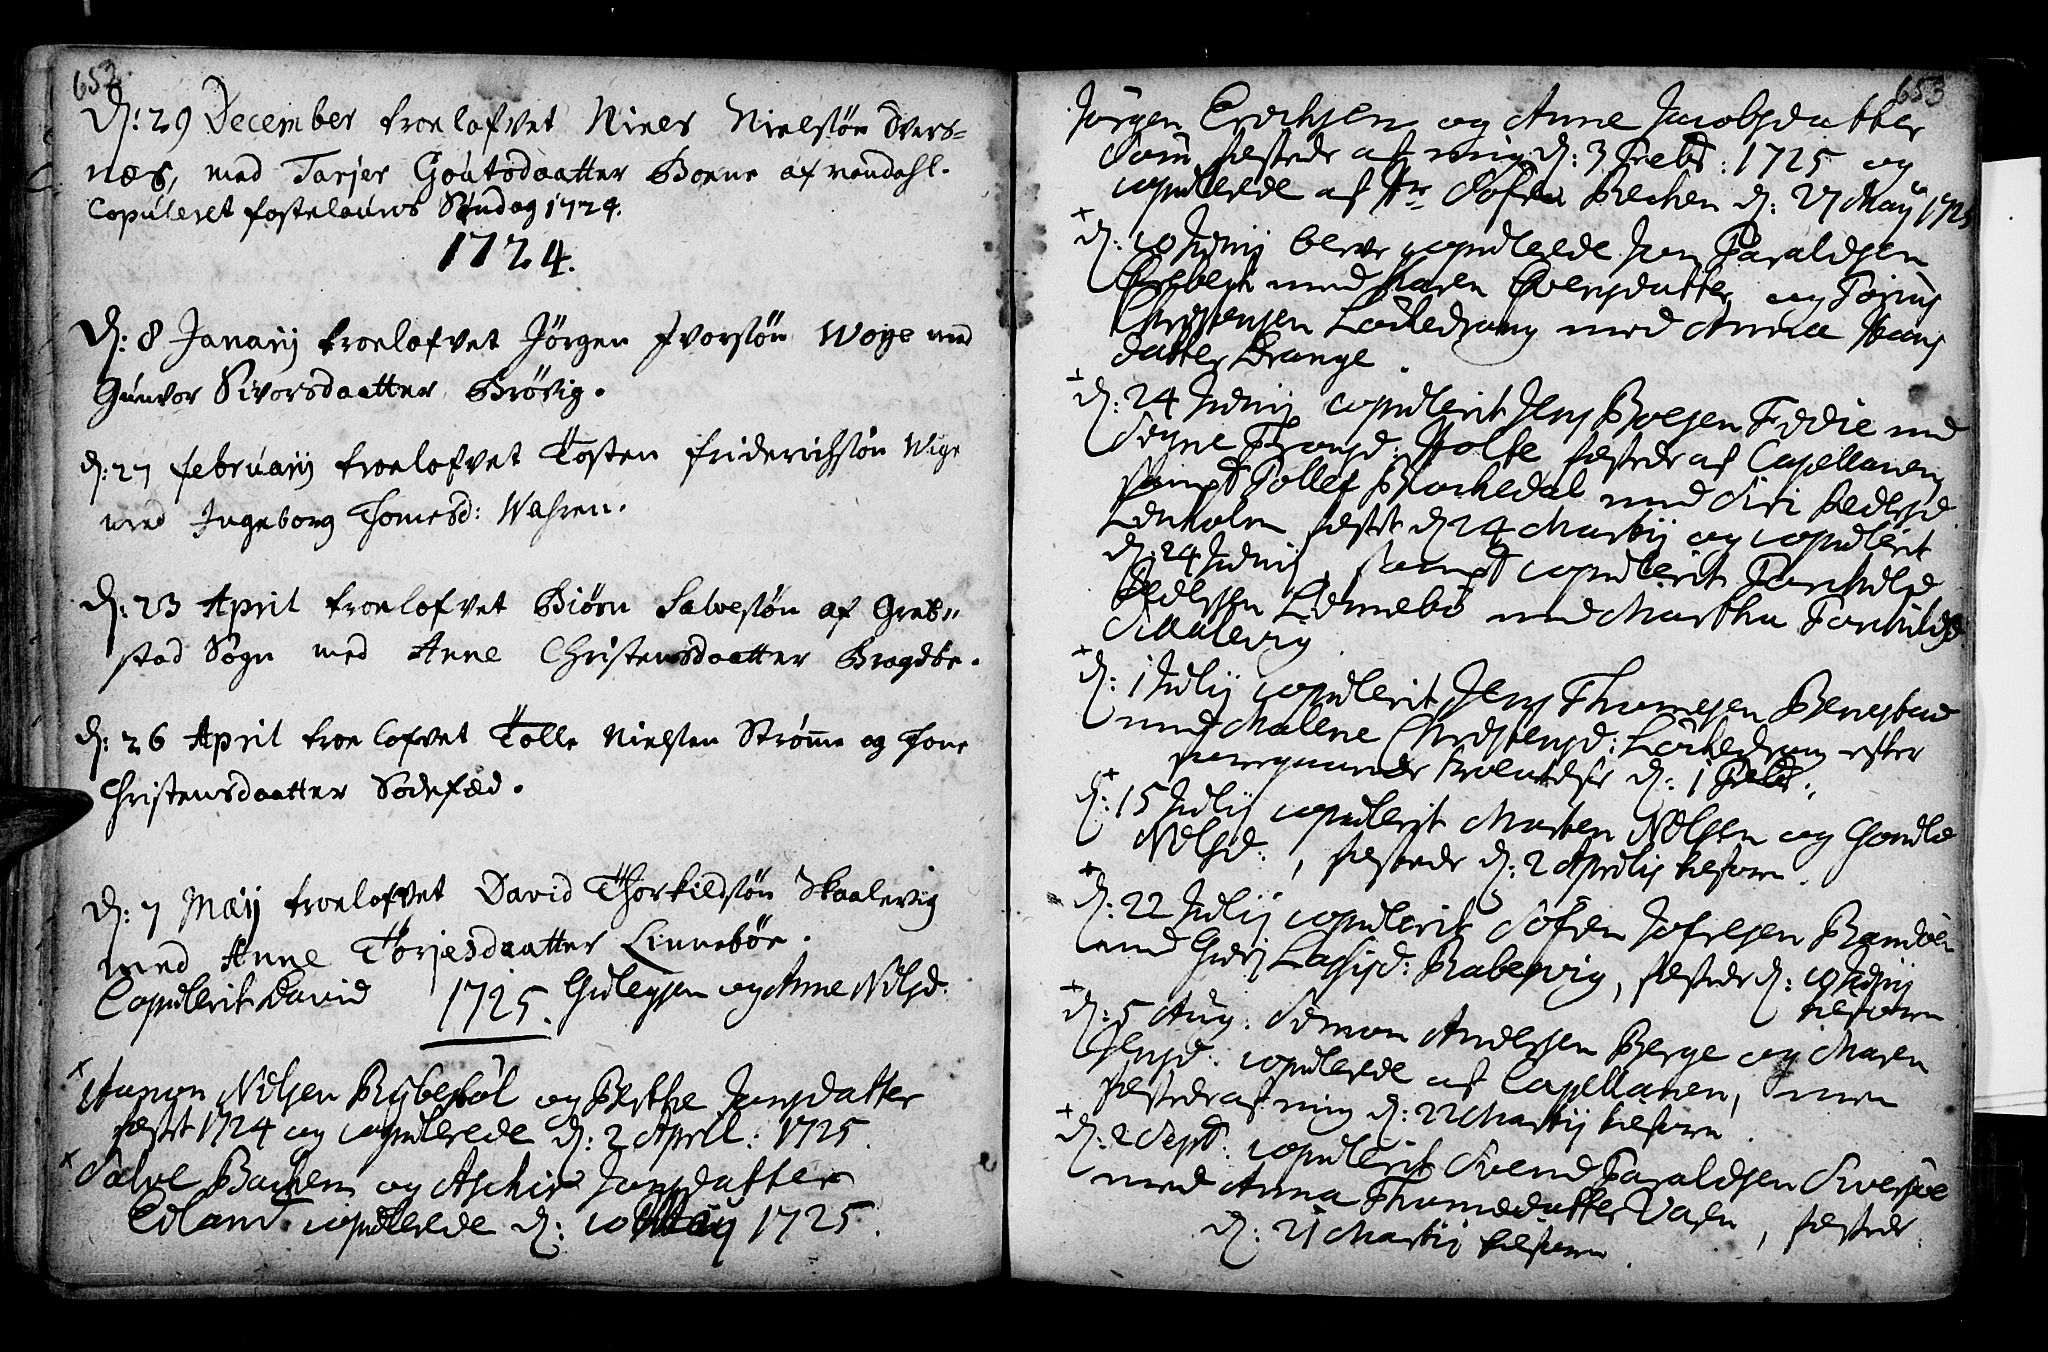 652
D: 29 December troelofvet Niels Nielssøn Svers-
næs, med Tarjer Goutsdaatter Boene af
Copuleret fastelauns Søndag 1724.
1724.
D: 8 Janarij troelofvet Jörgen Ivorssøn Woge med
Gunvor Sivorsdaatter Brövig.
D: 27 februarij troelofvet Tosten friderichssøn Wige
med Ingeborg Thomesd: Wahren.
D: 23 April troelofvet Biörn Salvessøn af Greb-
stad Søgn med Anne Christensdaatter Bragdöe.
D: 26 April troelofvet Tolle Nielsen Strømme og Tone
Christensdaatter Sodefæd.
D: 7 Maij troelofvet David Thorkildssøn Skaalevig
med Anne Torjesdaatter Linneböe.
Copulerit David Gulegsen og Anne Nilsd:
1725.
Aanon Nilsen Rybestöl og Berthe Jonsdatter
fæstet 1724 og copulerede d: 2 April: 1725.
Salve Bachen og Aschier Jonsdatter
Eeland copulerede d: 10 Maij 1725.
653
Jörgen Erichsen og Anne Jacobsdatter
Som fæstede af mig d: 3 Febr: 1725 og
copulerede af Hr Søfren Brechen d: 27 Maij 1725
D: 10 Junij bleve copulerede Jon Taraldsen
med Maren Evensdatter og Torius
Christensen Lachedrang med Anna Hans
datter Drange.
D: 24 Junij copulerit Jens Boesen Fidie med
Signe Trons d: Holte fæstede af Capellanen
sampt Tollef Blachedal med Siri Peders d.
Lonholm fæstet d 24 Martij og copulerit
d: 24 Junij, sampt copulerit Torchild
Pedersen Linnebö med Martha Torchilds d.
Skalevig
D: 1 Julij copulerit Jens Thomesen Benestad
med Malene Christensd: Lachedrang efter
foregaaende troelofvelse d: 1 Febr.
D: 15 Julij copulerit Morten Nilsen og Gondle
Nilsd:, fæstede d: 2 Aprilis tilforn.
D: 22 Julij copulerit Søfren Jofresen Randöen
med Guri Lassisd: Rabersvig, fæstede d: 10 Junij
tilforn
D: 5 Aug: Simon Andersen Berge og Maren
Jensd: copulerede af Capellanen, men
fæstede af mig d: 22 Martij tilforn.
D: 2 Sept: copulerit Svend Taraldsen
med Anna Thomedatter Varen, fæstede
d: 21 Martij tilforn.